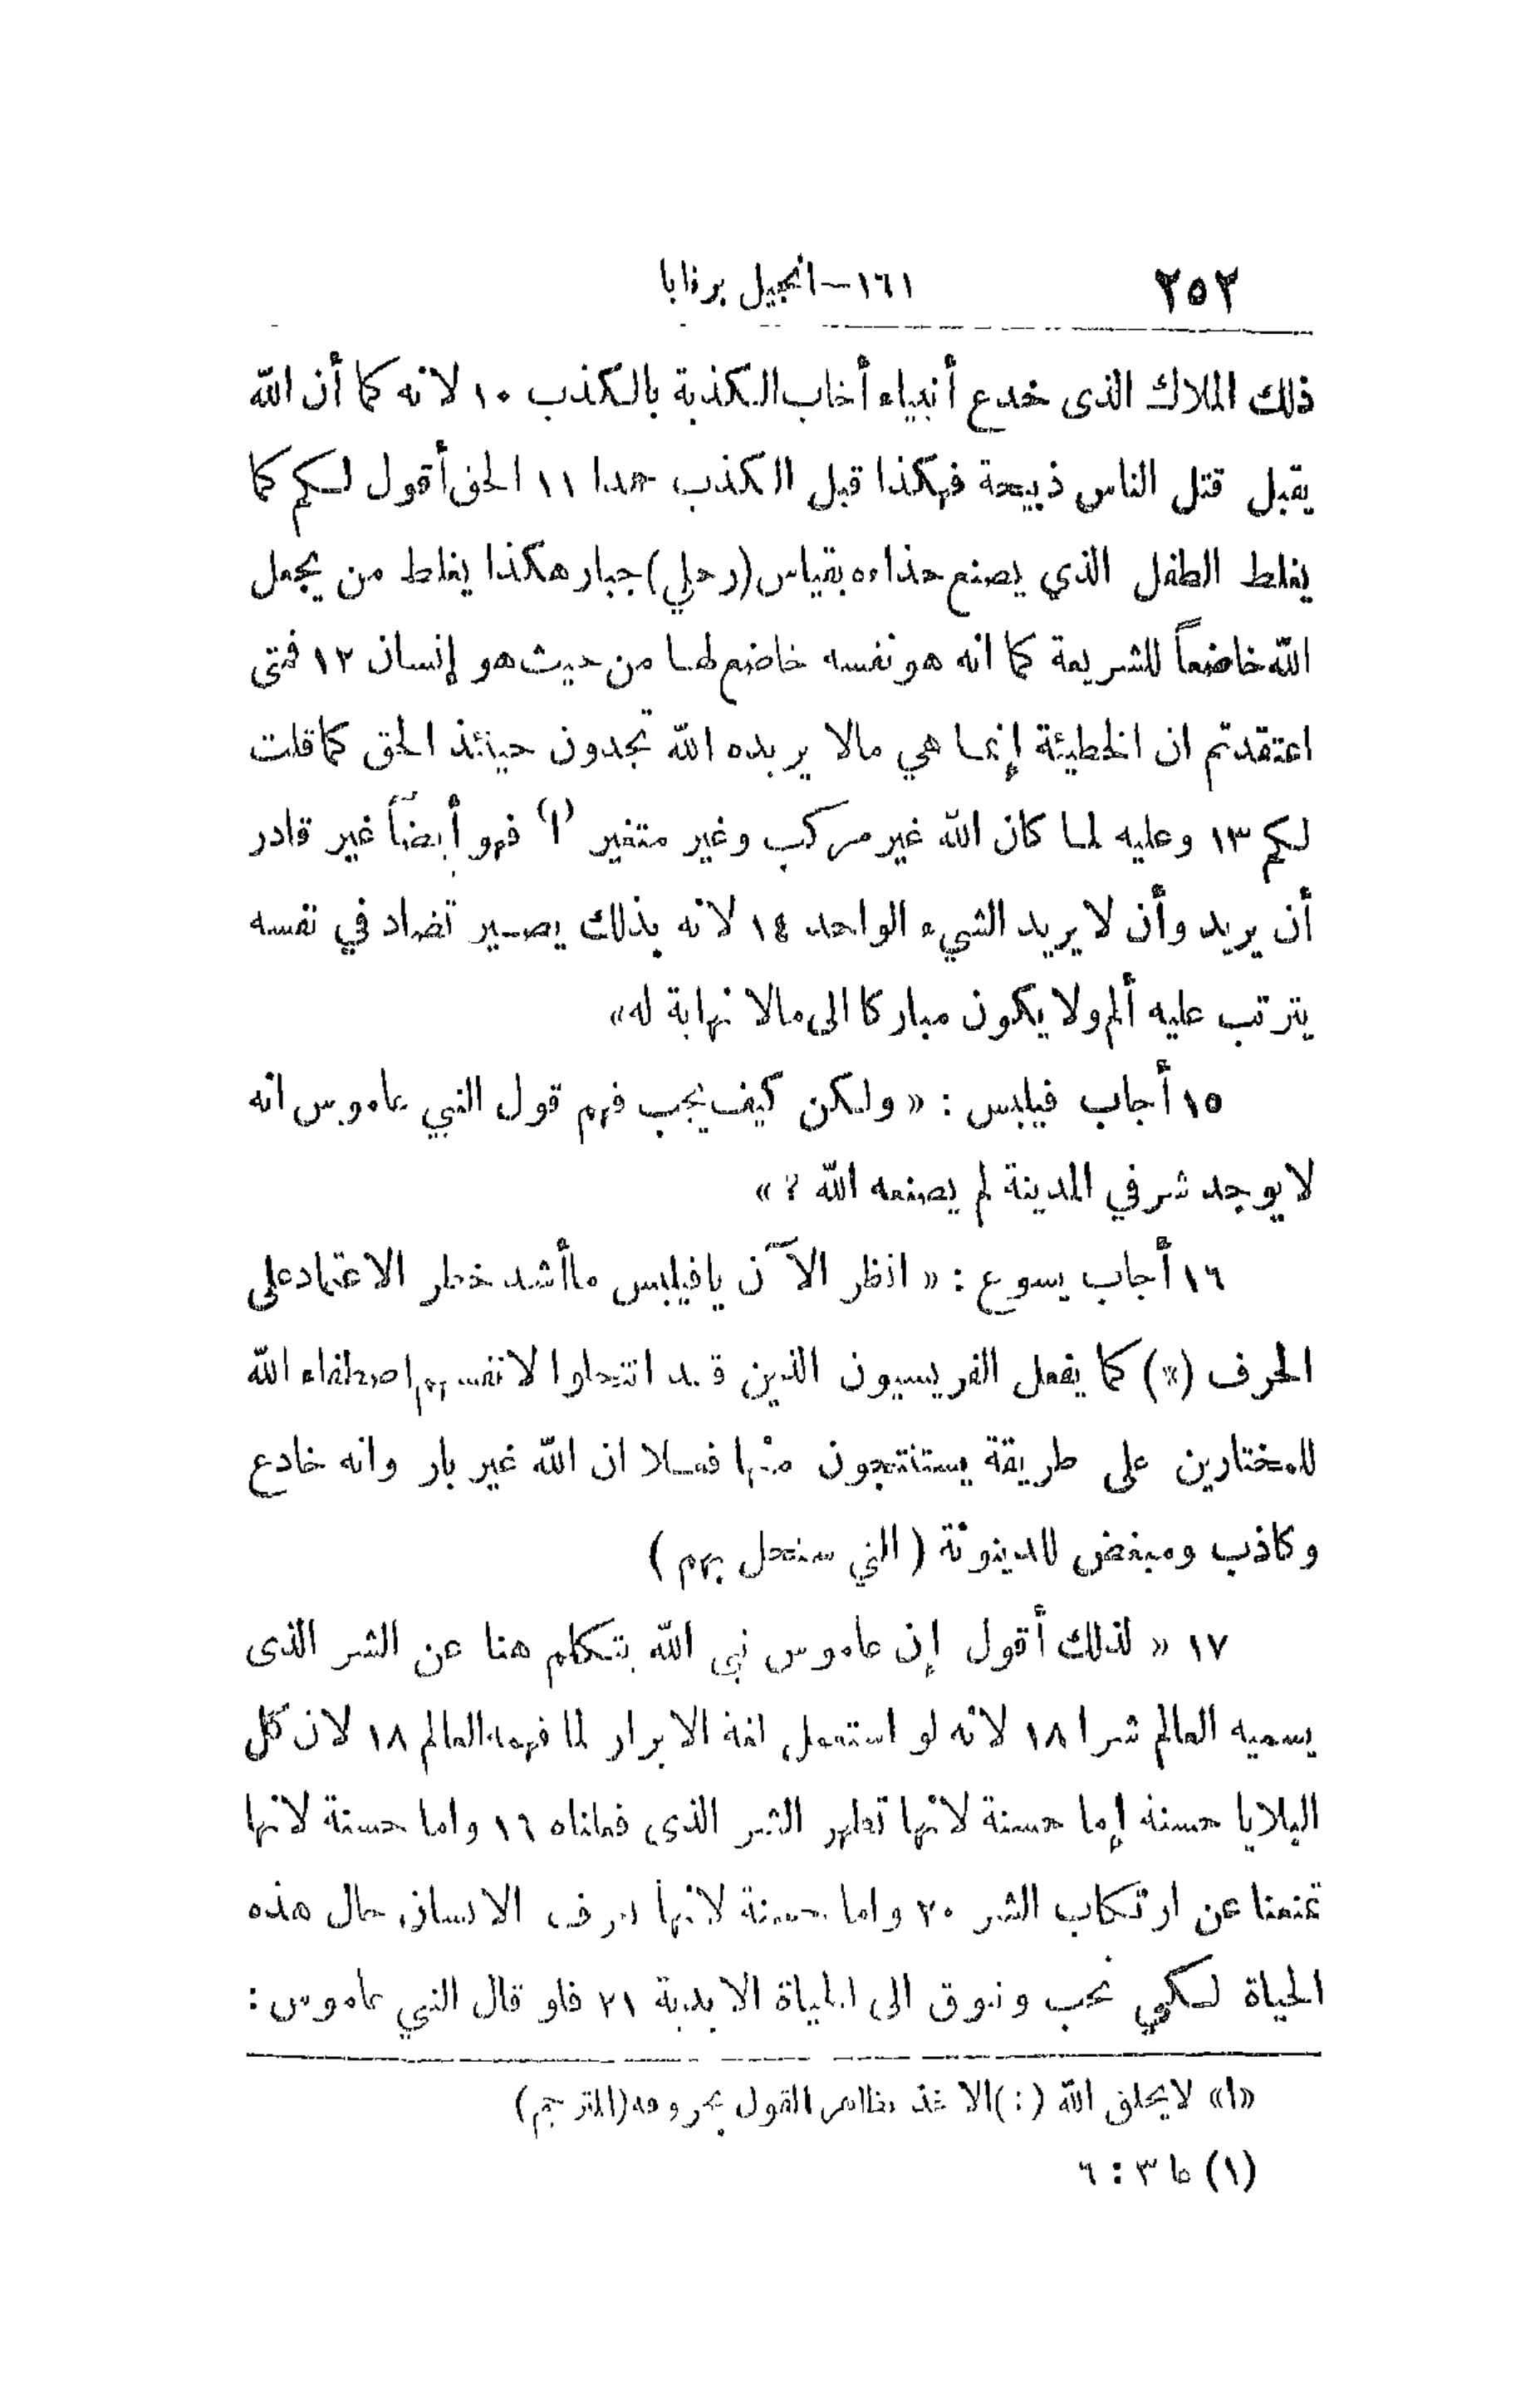 ٢٥٢ ١٦١ — انجيل برنابا
ذلك الملاك الذى خدع أنبياء أخاب الكذبة بالكذب ١٠ لانه كما أن الله
يقبل قتل الناس ذبيحة فهكذا قبل الكذب حمدا ١١ الحق أقول لكم كما
يغلط الطفل الذي يصنع حذاءه بقياس (رجلي) جبار هكذا يغلط من يجعل
الله خاضعاً للشريعة كما انه هو نفسه خاضع لها من حيث هو إنسان ١٢ فمتى
اعتقدتم ان الخطيئة إنما هي مالا يريده الله تجدون حينئذ الحق كما قلت
لكم ١٣ وعليه لما كان الله غير مركب وغير متغير (ا) فهو أيضاً غير قادر
أن يريد وأن لا يريد الشيء الواحد ١٤ لانه بذلك يصير تضاد في نفسه
يترتب عليه ألم ولا يكون مباركا الى مالا نهاية له»
١٥ أجاب فيلبس : « ولكن كيف يجب فهم قول النبي عاموس انه
لا يوجد شر في المدينة لم يصنعه الله ؟ »
١٦ أجاب يسوع : « انظر الآن يا فيلبس ما أشد خطر الاعتماد على
الحرف (*) كما يفعل الفريسيون الذين قد انتحلوا لانفسهم اصطفاء الله
للمختارين على طريقة يستنتجون منها فعلا ان الله غير بار وانه خادع
وكاذب ومبغض للدينونة ( التي ستحل بهم )
١٧ « لذلك أقول إن عاموس نبي الله يتكلم هنا عن الشر الذى
يسميه العالم شرا ١٨ لانه لو استعمل لغة الابرار لما فهمه العالم ١٨ لان كل
البلايا حسنة إما حسنة لانها تطهر الشر الذى فعلناه ١٦ واما حسنة لانها
تمنعنا عن ارتكاب الشر ٢٠ واما حسنة لانها تعرف الانسان حال هذه
الحياة لكي نحب ونوق الى الحياة الابدية ٢١ فلو قال النبي عاموس :
«ا» لا يخلق الله (:) الاخذ بظاهر القول بحروفه (المترجم)
(١) عا ٣ : ٦